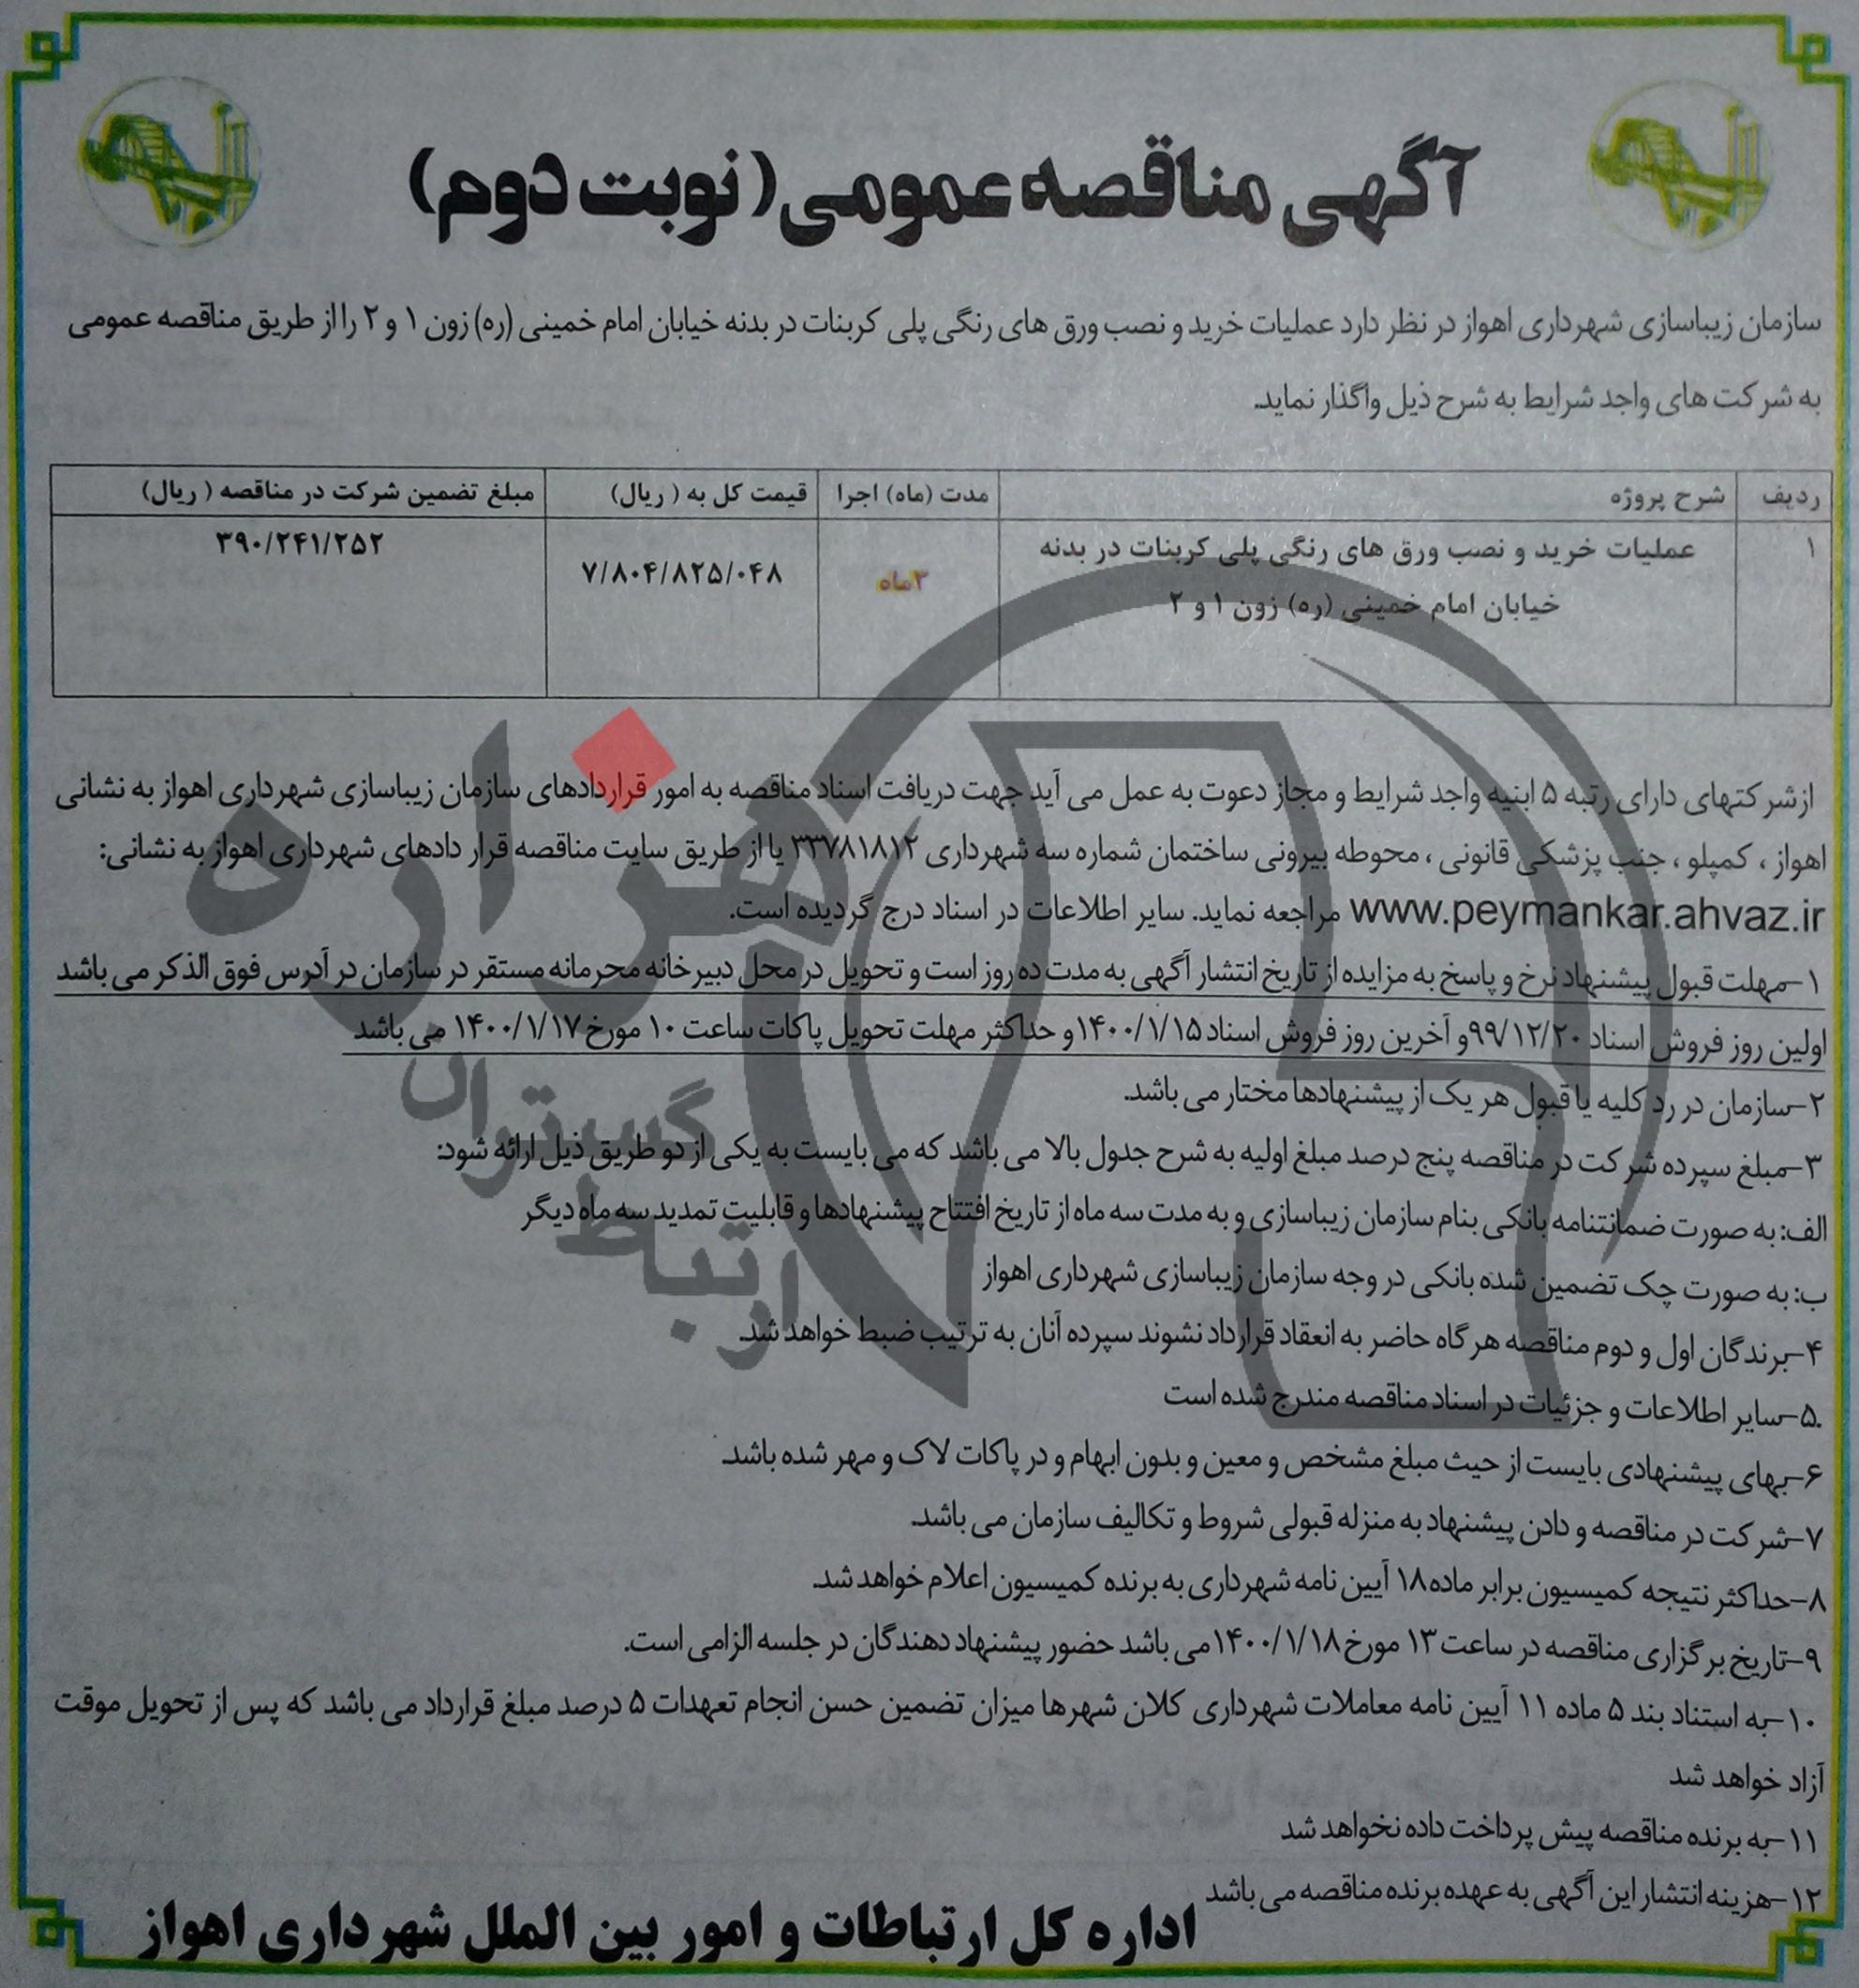 آگهی مناقصه عمومی( نوبت دوم)
سازمان زیباسازی شهرداری اهواز در نظر دارد عملیات خرید و نصب ورق های رنگی پلی کربنات در بدنه خیابان امام خمینی (ره) زون ۱ و ۲ را از طریق مناقصه عمومی
به شرکت های واجد شرایط به شرح ذیل واگذار نماید.
ردیف شرح پروژه مدت (ماه) اجرا قیمت کل به ( ریال) مبلغ تضمین شرکت در مناقصه ( ریال)
۱ عملیات خرید و نصب ورق های رنگی پلی کربنات در بدنه
خیابان امام خمینی (ره) زون ۱ و ۲
۳ماه
۷/۸۰۴/۸۲۵/۰۴۸
۳۹۰/۲۴۱/۲۵۲
ازشرکتهای دارای رتبه ۵ ابنیه واجد شرایط و مجاز دعوت به عمل می آید جهت دریافت اسناد مناقصه به امور قراردادهای سازمان زیباسازی شهرداری اهواز به نشانی
اهواز ، کمپلو ، جنب پزشکی قانونی ، محوطه بیرونی ساختمان شماره سه شهرداری ۳۳۷۸۱۸۱۲ یا از طریق سایت مناقصه قرار دادهای شهرداری اهواز به نشانی:
www.peymankar.ahvaz.ir مراجعه نماید. سایر اطلاعات در اسناد درج گردیده است.
۱-مهلت قبول پیشنهاد نرخ و پاسخ به مزایده از تاریخ انتشار آگهی به مدت ده روز است و تحویل در محل دبیرخانه محرمانه مستقر در سازمان در آدرس فوق الذکر می باشد
اولین روز فروش اسناد ۹۹/۱۲/۲۰و آخرین روز فروش اسناد ۱۴۰۰/۱/۱۵و حداکثر مهلت تحویل پاکات ساعت ۱۰ مورخ ۱۴۰۰/۱/۱۷ می باشد
۲-سازمان در رد کلیه یا قبول هر یک از پیشنهادها مختار می باشد.
۳-مبلغ سپرده شرکت در مناقصه پنج درصد مبلغ اولیه به شرح جدول بالا می باشد که می بایست به یکی از دو طریق ذیل ارائه شود:
الف: به صورت ضمانتنامه بانکی بنام سازمان زیباسازی و به مدت سه ماه از تاریخ افتتاح پیشنهادها و قابلیت تمدید سه ماه دیگر
ب: به صورت چک تضمین شده بانکی در وجه سازمان زیباسازی شهرداری اهواز
۴-برندگان اول و دوم مناقصه هر گاه حاضر به انعقاد قرارداد نشوند سپرده آنان به ترتیب ضبط خواهد شد.
۵-سایر اطلاعات و جزئیات در اسناد مناقصه مندرج شده است
۶-بهای پیشنهادی بایست از حیث مبلغ مشخص و معین و بدون ابهام و در پاکات لاک و مهر شده باشد.
۷-شرکت در مناقصه و دادن پیشنهاد به منزله قبولی شروط و تکالیف سازمان می باشد.
۸-حداکثر نتیجه کمیسیون برابر ماده ۱۸ آیین نامه شهرداری به برنده کمیسیون اعلام خواهد شد.
۹-تاریخ برگزاری مناقصه در ساعت ۱۳ مورخ ۱۴۰۰/۱/۱۸می باشد حضور پیشنهاد دهندگان در جلسه الزامی است.
۱۰-به استناد بند ۵ ماده ۱۱ آیین نامه معاملات شهرداری کلان شهرها میزان تضمین حسن انجام تعهدات ۵ درصد مبلغ قرارداد می باشد که پس از تحویل موقت
آزاد خواهد شد
۱۱-به برنده مناقصه پیش پرداخت داده نخواهد شد
۱۲-هزینه انتشار این آگهی به عهده برنده مناقصه می باشد
اداره کل ارتباطات و امور بین الملل شهرداری اهواز
هزاره
ارتباط گستران